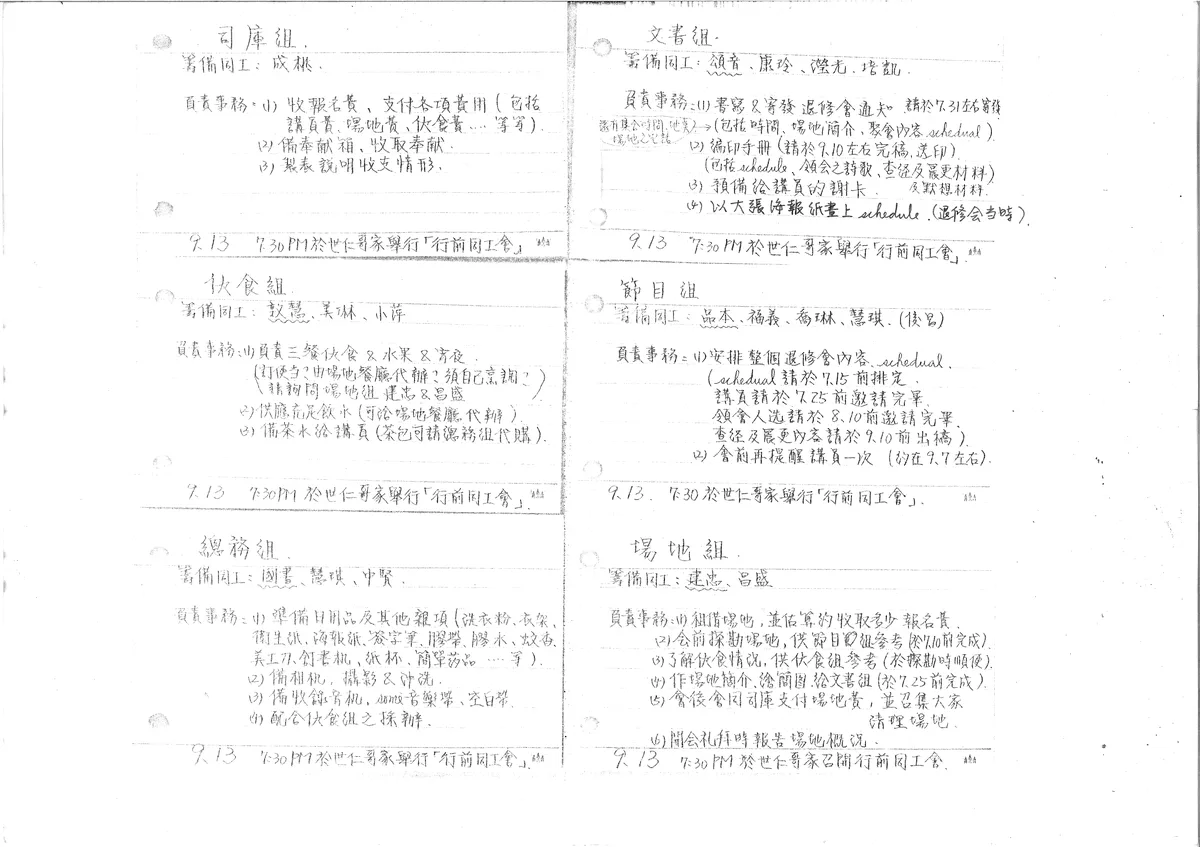 司庫組.
籌備同工: 成桃.
負責事務: (1) 收報名費、支付各項費用 (包括
講員費、場地費、伙食費…. 等等).
(2) 備奉獻箱、收取奉獻.
(3) 製表說明收支情形.
9.13 7:30 PM 於世仁哥家舉行「行前同工會」
文書組.
籌備同工: 頌音、康玲、瀅光、培凱.
負責事務: (1) 書寫 & 寄發退修會通知 請於7.31左右寄發
還有集合時間、地點
場地之電話
→(包括時間、場地簡介、聚會內容 schedual).
(2) 編印手冊 (請於9.10左右完稿, 送印).
(包括 schedule、領會之詩歌、查經及晨更材料)
及默想材料.
(3) 預備給講員的謝卡.
(4) 以大張海報紙畫上 schedule. (退修会当時).
9.13 7:30 PM 於世仁哥家舉行「行前同工會」.
伙食組.
籌備同工: 敦慧、美琳、小萍
負責事務: (1) 負責三餐伙食 & 水果 & 宵夜.
(訂便当? 由場地餐廳代辦? 須自己烹調?
請詢問場地組 建忠 & 昌盛)
(2) 供應充足飲水 (可洽場地餐廳代辦).
(3) 備茶水給講員 (茶包可請總務組代購).
9.13 7:30 PM 於世仁哥家舉行「行前同工會」.
節目組
籌備同工: 品本、福義、喬琳、慧琪. (俊呂)
負責事務: (1) 安排整個退修會內容、schedual.
(schedual 請於 7.15 前排定.
講員請於 7.25 前邀請完畢.
領會人选請於 8.10 前邀請完畢.
查經及晨更內容請於 9.10 前出稿).
(2) 會前再提醒講員一次 (約在9.7左右).
9.13. 7:30 於世仁哥家舉行「行前同工會」.
總務組.
籌備同工: 國書、慧琪、中賢.
負責事務: (1) 準備日用品及其他雜項 (洗衣粉、衣架、
衛生紙、海報紙、簽字筆、膠帶、膠水、蚊香、
美工刀、釘書机、紙杯、簡單药品 …. 等).
(2) 備相机, 攝影 & 沖洗.
(3) 備收錄音机, 音樂帶、空白帶.
(4) 配合伙食組之採辦.
9.13 7:30 PM 於世仁哥家舉行「行前同工會」.
場地組.
籌備同工: 建忠、昌盛
負責事務: (1) 租借場地, 並估算約收取多少報名費.
(2) 会前探勘場地, 供節目組參考 (於7.10前完成).
(3) 了解伙食情況, 供伙食組參考 (於探勘時順便).
(4) 作場地簡介、繪簡圖, 給文書組 (於7.25前完成).
(5) 會後會同司庫支付場地費, 並召集大家
清理場地.
(6) 開会礼拜時報告場地概況.
9.13 7:30 PM 於世仁哥家召開行前同工會.